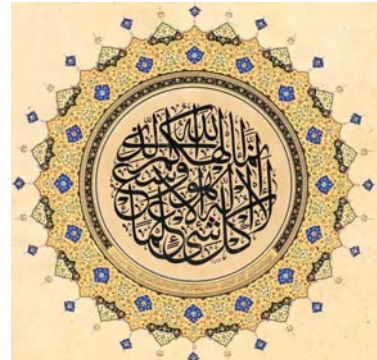 إنما إلهكم الله الذي لا إله إلا هو وسع كل شيء علما